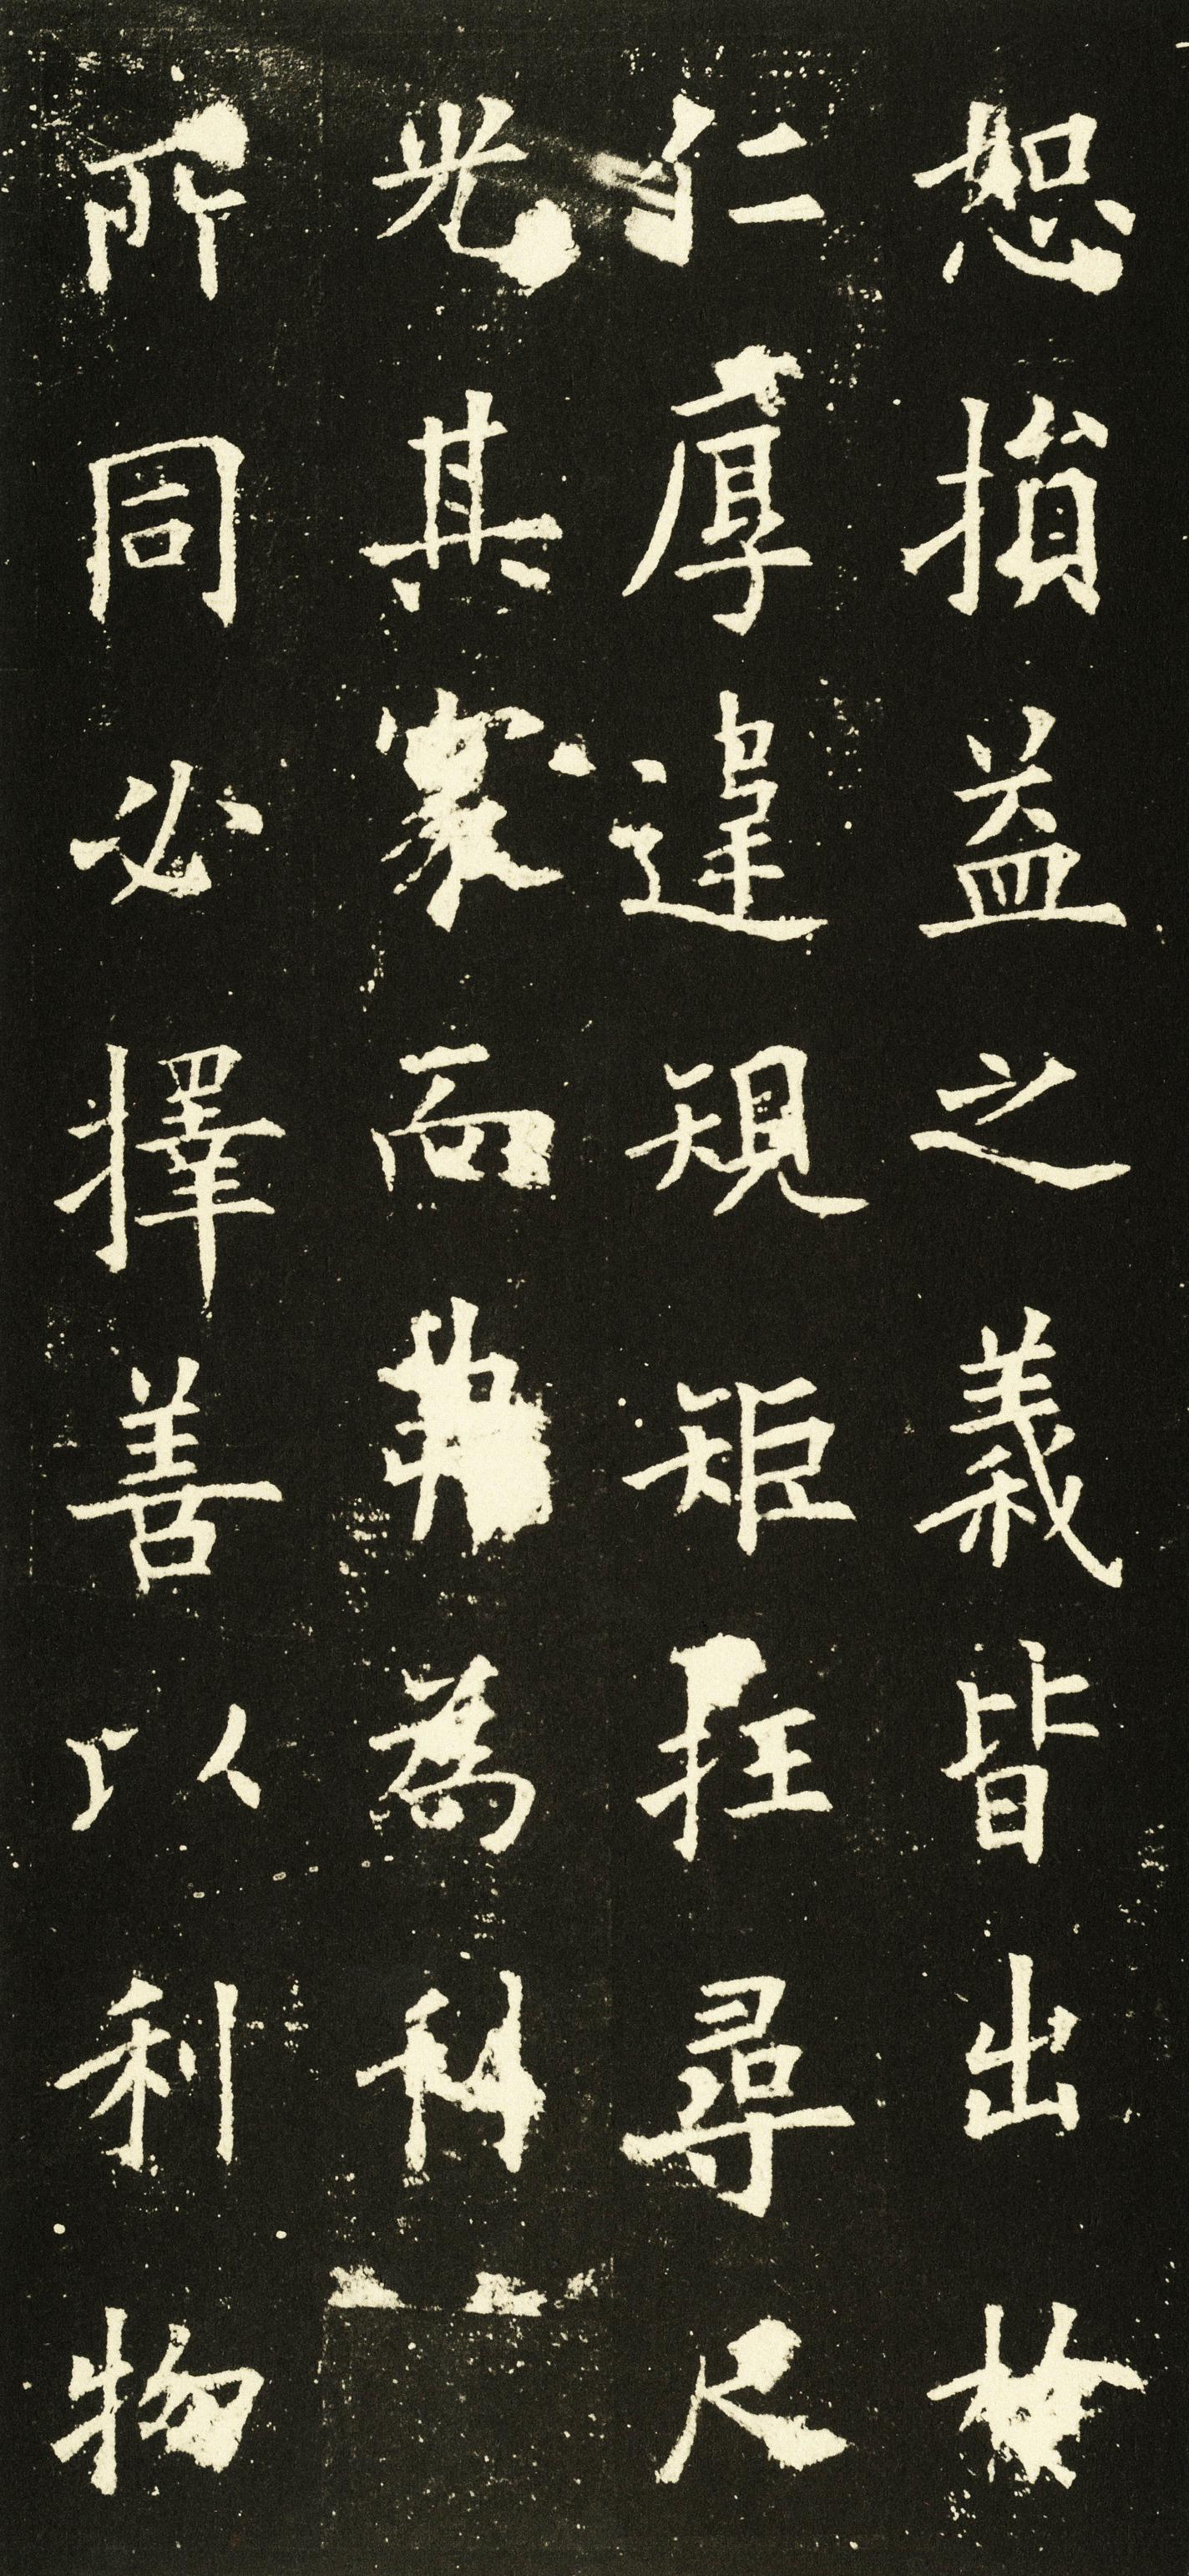 恕損益之義皆出於
仁厚違規矩枉尋尺
光其而為
所同必擇善以利物